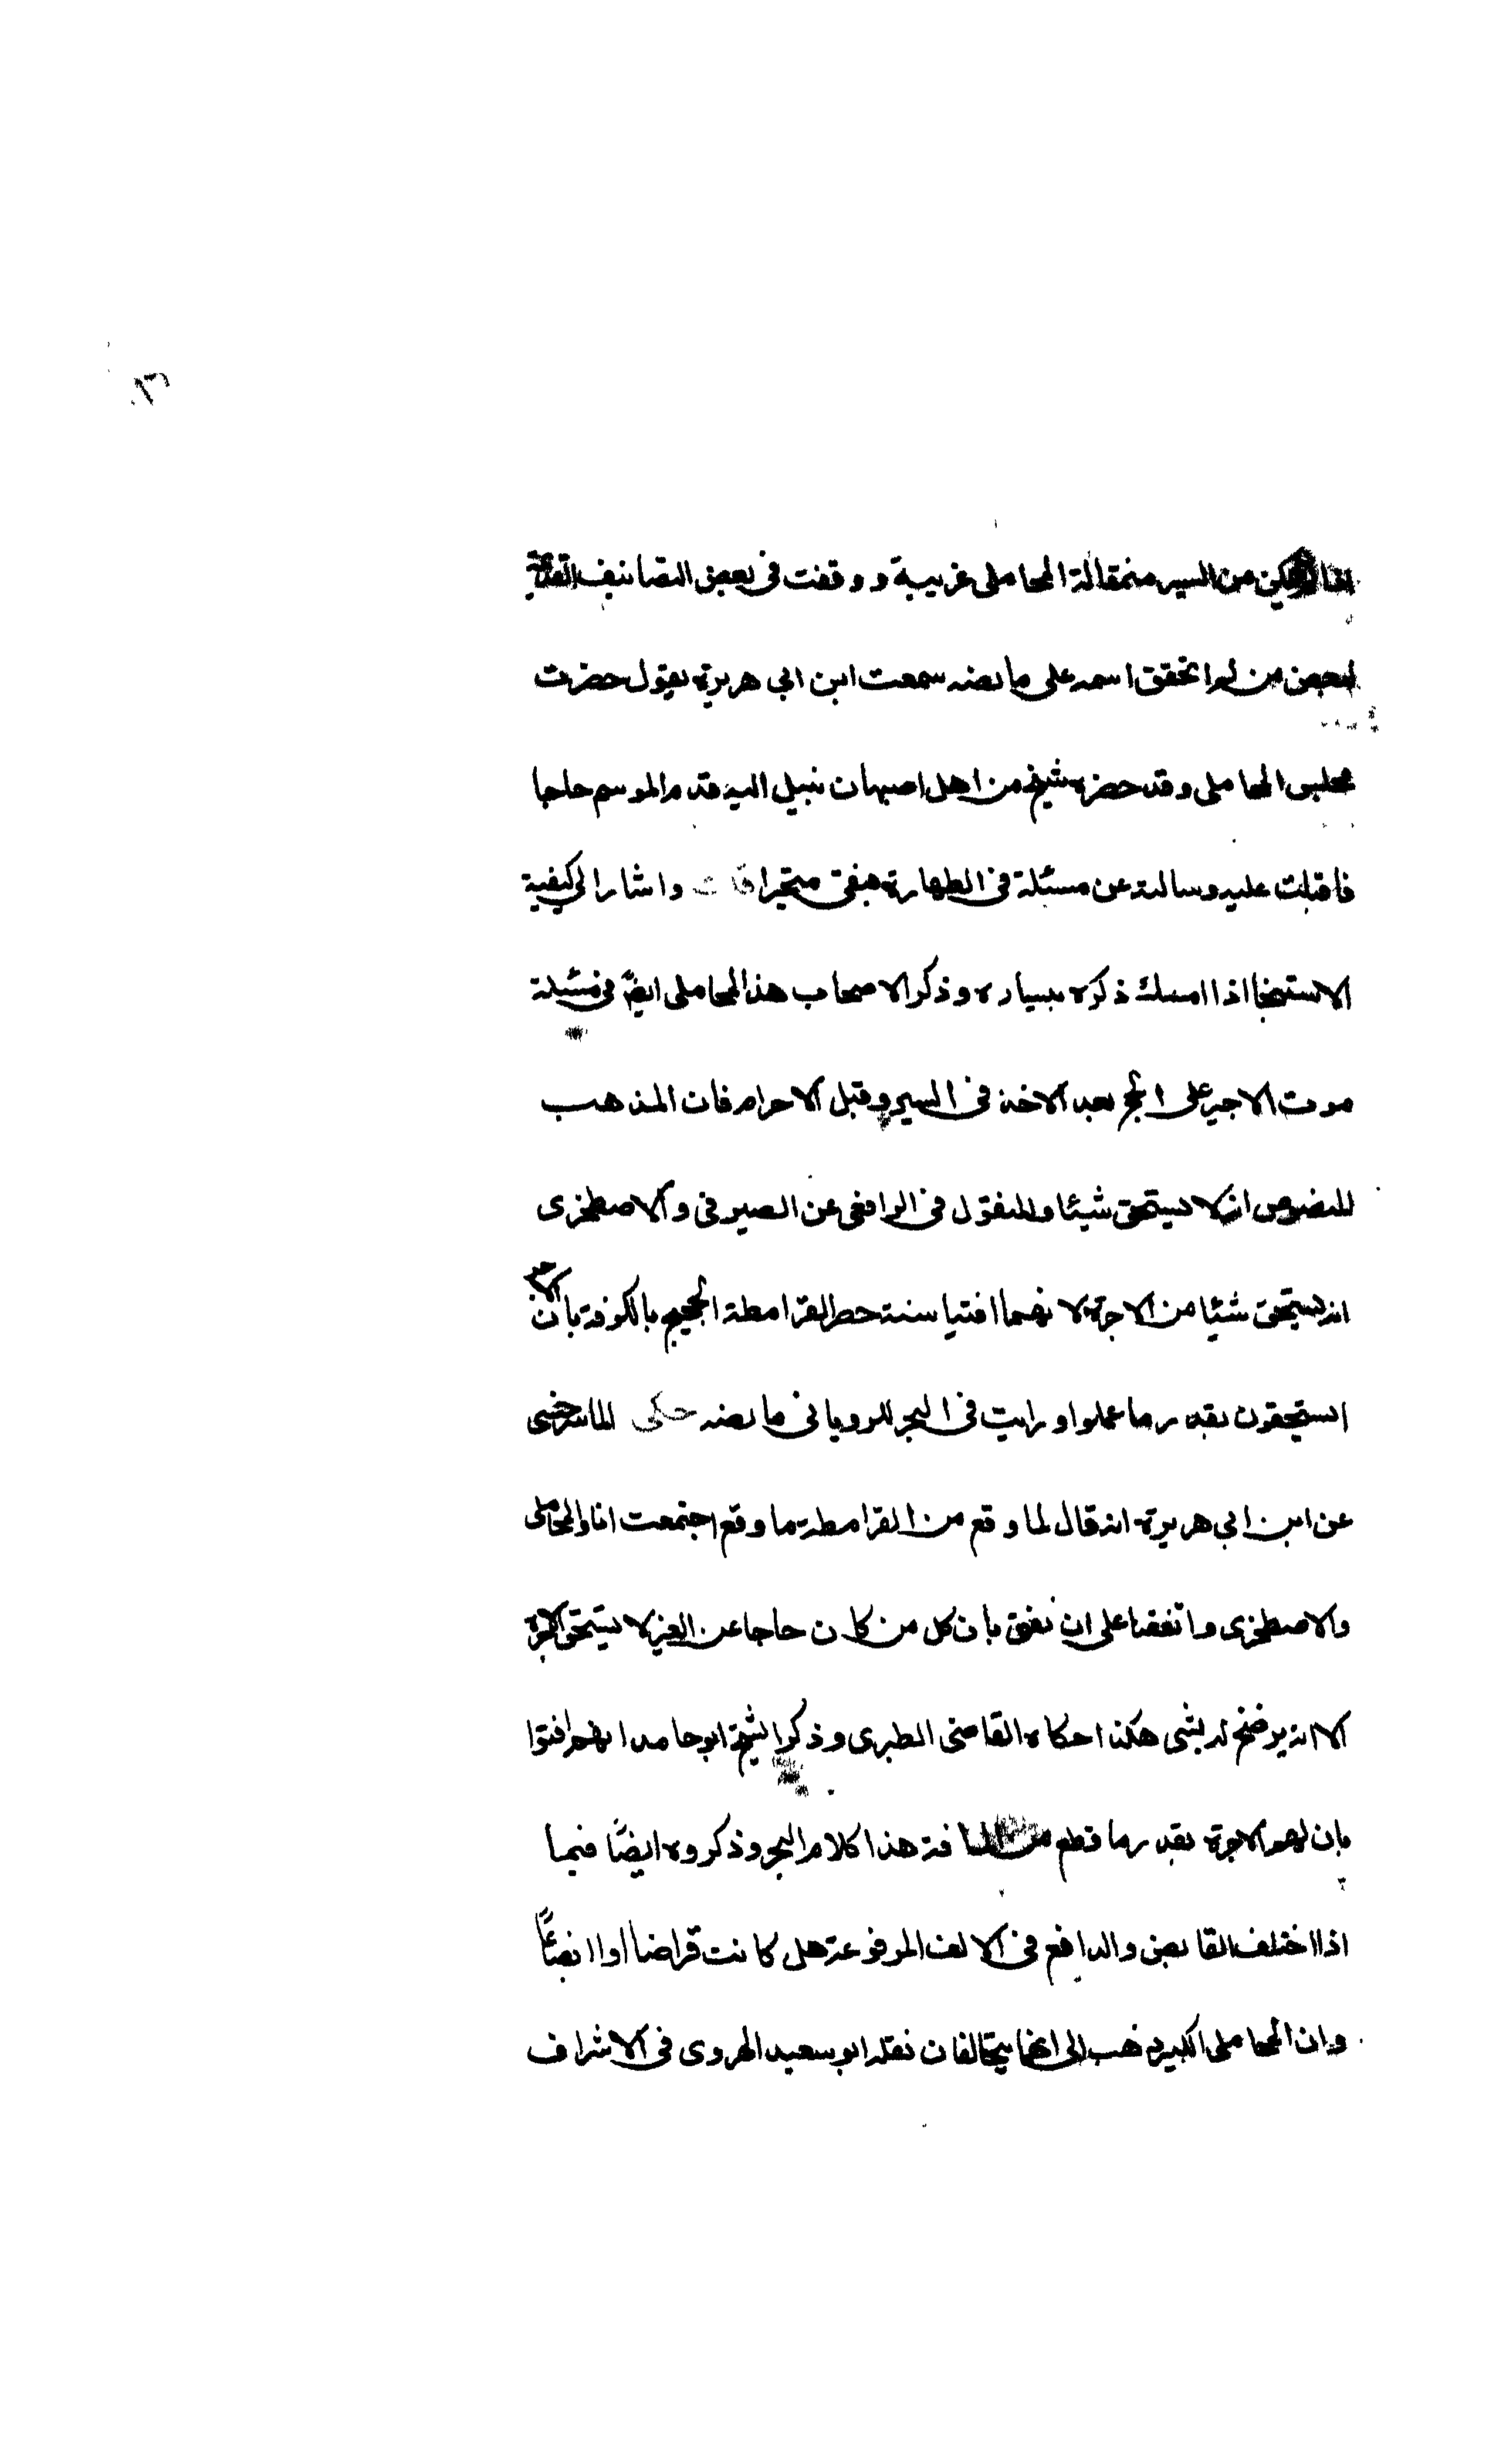 من السير منمقالة المحاملى غريبة ووقفت فى بعض التصانيف القديمة
لبعض من لم اتحقق اسمه على ما نصه سمعت ابن ابي هريرة يقول حضرت
مجلس المحاملى وقد حضره شيخ من اهل اصبهان نبيل اليه قدم الموسم حاجا
فاقبلت عليه وسالته عن مسئلة فى الطهارة فبقى متحيرا واشار الى كيفية
الاستنجا اذا امسك ذكره بيساره وذكر الاصحاب هذا المحاملى ايضًا فى مسئلة
موت الاجير على الحج بعد الاخذ فى السير وقبل الاحرام فان المذهب
المنصوص انه لا يستحق شيئا والمنقول فى الرافعى عن الصيرفى والاصطخرى
انه يستحق شيئا من الاجرة لانهما افتيا سنة حصر القرامطة الحجيج بالكوفة بان الاجر
يستحقون بقدر ما عملوا ورايت فى البحر للرويانى ما نصه حكى الماسرجسى
عن ابن ابي هريرة انه قال لما وقع من القرامطة ما وقع اجتمعت انا والمحاملى
والاصطخرى واتفقنا على ان نفتى بان كل من كان حاجا عن الغير لا يستحق الاجرة
الا انه يرضخ له بشى هكذا حكاه القاضى الطبرى وذكر الشيخ ابو حامد انهم افتوا
بان لهم الاجرة بقدر ما قطع من المسافة هذا كلام البحر وذكروه ايضًا فيما
اذا اختلف القابض والدافع فى الالف المرفوعة هل كانت قراضا او
وان المحاملى الكبير ذهب الى انهما يتحالفان نقله ابو سعيد الهروى فى الاشراف